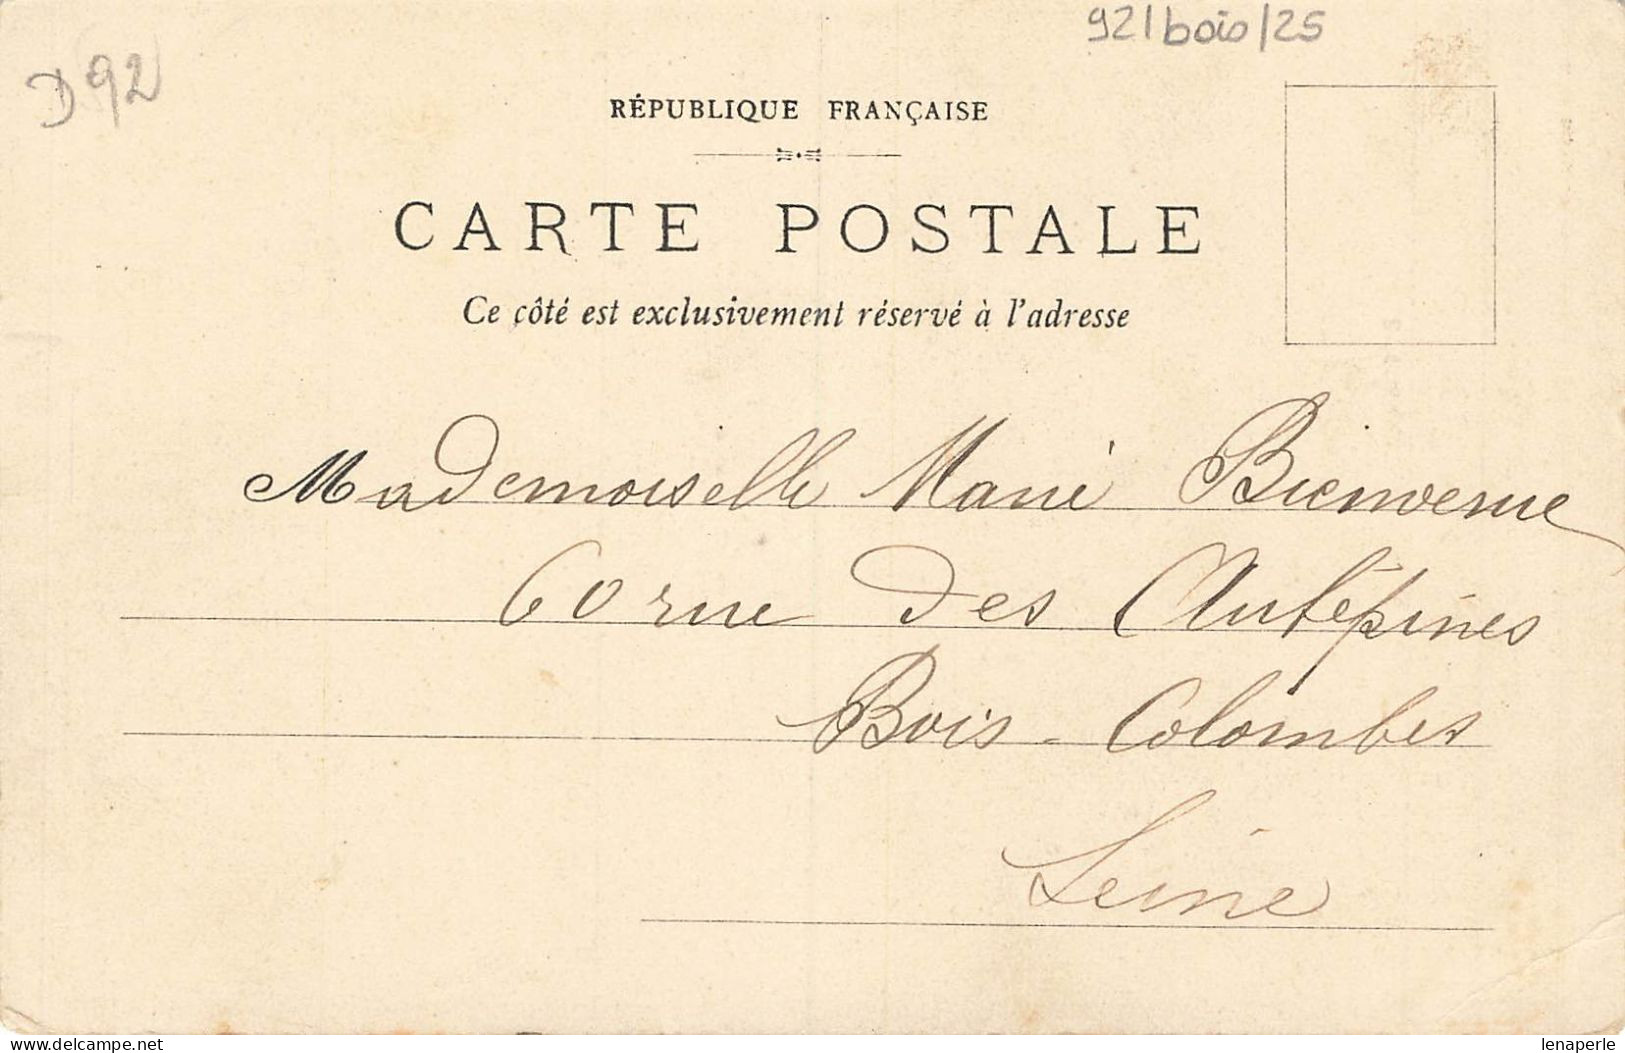 92/bois/25
D92
RÉPUBLIQUE FRANÇAISE
CARTE POSTALE
Ce côté est exclusivement réservé à l'adresse
Mademoiselle Marie Bienvenue
60 rue des Aubépines
Bois-Colombes
Seine
www.delcampe.net
lenaperle